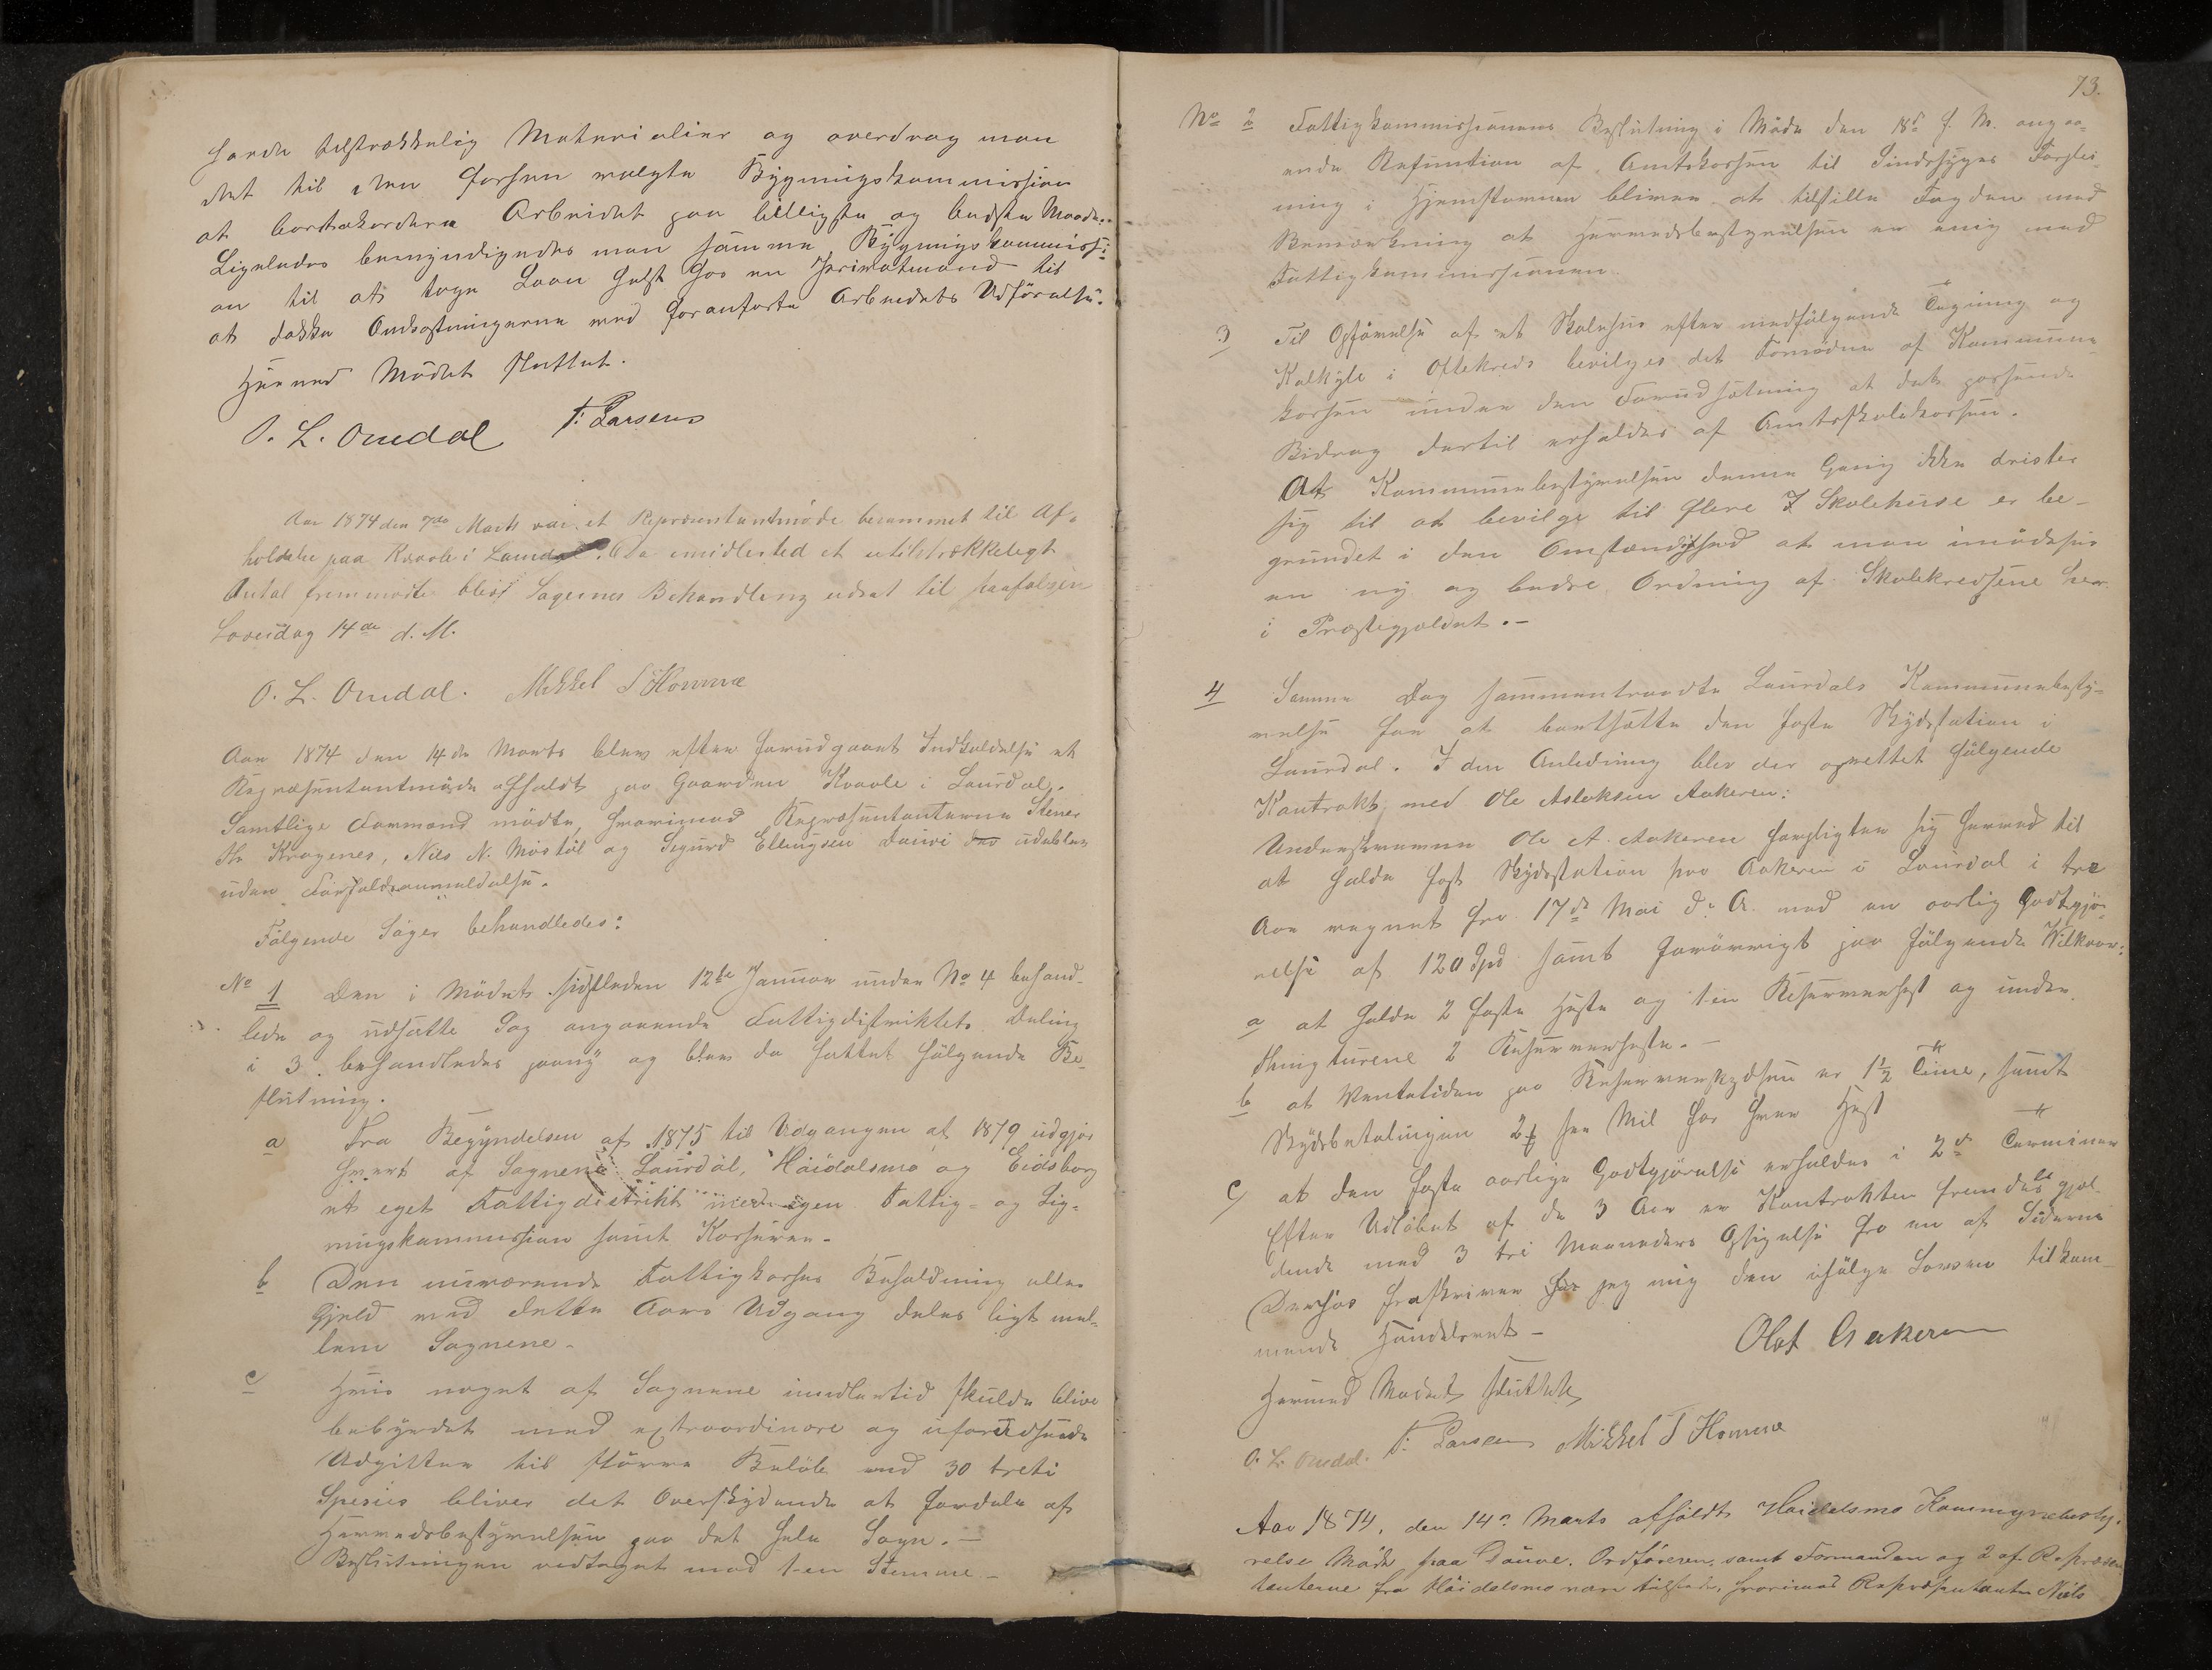 havde tilstrækkelig Materialier og overdrog man
det til den forhen valgte Bygningskommission
at bortakordere Arbeidet paa billigste og bedste Maade.
Ligeledes bemyndigedes man samme Bygningskommissi-
on til at tage Laan helst hos en Privatmand til
at dække Omkostningerne med foranførte Arbeidets Udførelse.
Hermed Mødet sluttet.
O. L. Omdal T. Larsen
Aar 1874 den 7de Marts var et Repræsentantmøde berammet til Af-
holdelse paa Kvaale i Laurdal. Da imidlertid et utilstrækkeligt
Antal fremmødte blev Sagernes Behandling udsat til paafølgen
Løverdag 14de d. M.
O. L. Omdal. Mikkel S Homme
Aar 1874 den 14de Marts blev efter forudgaaet Indkaldelse et
Repræsentantmøde afholdt paa Gaarden Kvaale i Laurdal.
Samtlige Formænd mødte, hvorimod Repræsentanterne Stener
Hr Kragenes, Nils N. Mostøl og Sigurd Ellingsen Dauvi udeblev
uden Forfaldsanmeldelse.
Følgende Sager behandledes:
No 1 Den i Mødet sidstleden 12te Januar under No 4 behand-
lede og udsatte Sag angaaende Fattigdistriktets Deling
i 3. behandledes paany og blev da fattet følgende Be-
slutning.
a Fra Begyndelsen af 1875 til Udgangen af 1879 udgjør
hvert af Sognene Laurdal, Høidalsmo og Eidsborg
et eget Fattigdistrikt med egen Fattig- og Lig-
ningskommission samt Kasserer.
b Den nuværende Fattigkasses Beholdning eller
Gjeld med dette Aars Udgang deles ligt mel-
lem Sognene.
c Hvis noget af Sognene imidlertid skulde blive
bebyrdet med extraordinære og uforudseede
Udgifter til større Beløb end 30 treti
Spesies bliver det Overskydende at fordele af
Herredsbestyrelsen paa det hele Sogn. -
Beslutningen vedtaget mod 1 en Stemme. -
73.
No 2 Fattigkommissionens Beslutning i Møde den 18de f. M. angaa-
ende Refuntion af Amtskassen til Sindsyges Forplei-
ning i Hjemstavnen bliver at tilstille Fogden med
Bemærkning at Herredsbestyrelsen er enig med
Fattigkommissionen.
3 Til Opførelse af et Skolehus efter medfølgende Tegning og
Kalkyle i Oftekreds bevilges det Fornødne af Kommune-
kassen under den Forudsætning at det passende
Bidrag dertil erholdes af Amtsskolekassen.
At Kommunebestyrelsen denne Gang ikke drister
sig til at bevilge til flere Skolehuse er be-
grundet i den Omstændighed at man imødeser
en ny og bedre Ordning af Skolekredsene her
i Præstegjældet. -
4 Samme Dag sammentraadte Laurdals Kommunebesty-
relse for at bortsætte den faste Skydsstation i
Laurdal. I den Anledning blev der oprettet følgende
Kontrakt med Ole Asleksen Aakeren:
Underskrevne Ole A. Aakeren forpligter sig herved til
at holde fast Skydsstation paa Aakeren i Laurdal i tre
Aar regnet fra 17de Mai d. A. mod en aarlig Godtgjø-
relse af 120 Spd samt forøvrigt paa følgende Vilkaar:
a at holde 2 faste Heste og 1 en Reservehest og under
Thingturene 2 Reserveheste. -
b at Ventetiden paa Reserveskydsen er 1½ Time, samt
Skydsbetalingen per Mil for hver Hest
c at den faste aarlige Godtgjørelse erholdes i 2de Terminer
Efter Udløbet af de 3 Aar er Kontrakten fremdeles gjæl-
dende med 3 tri Maaneders Opsigelse fra en af Siderne
Derhos fraskriver jeg mig den ifølge Loven tilkom-
mende Handelsret -
Olaf Aakeren
Hermed Mødet sluttet
O. L. Omdal. T. Larsen Mikkel S Homme
Aar 1874, den 14de Marts afholdt Høidalsmo Kommunebesty-
relse Møde paa Dauve. Ordføreren, samt Formanden og 2 af Repræsen
tanterne fra Høidalsmo vare tilstede, hvorimod Repræsentanten Niels